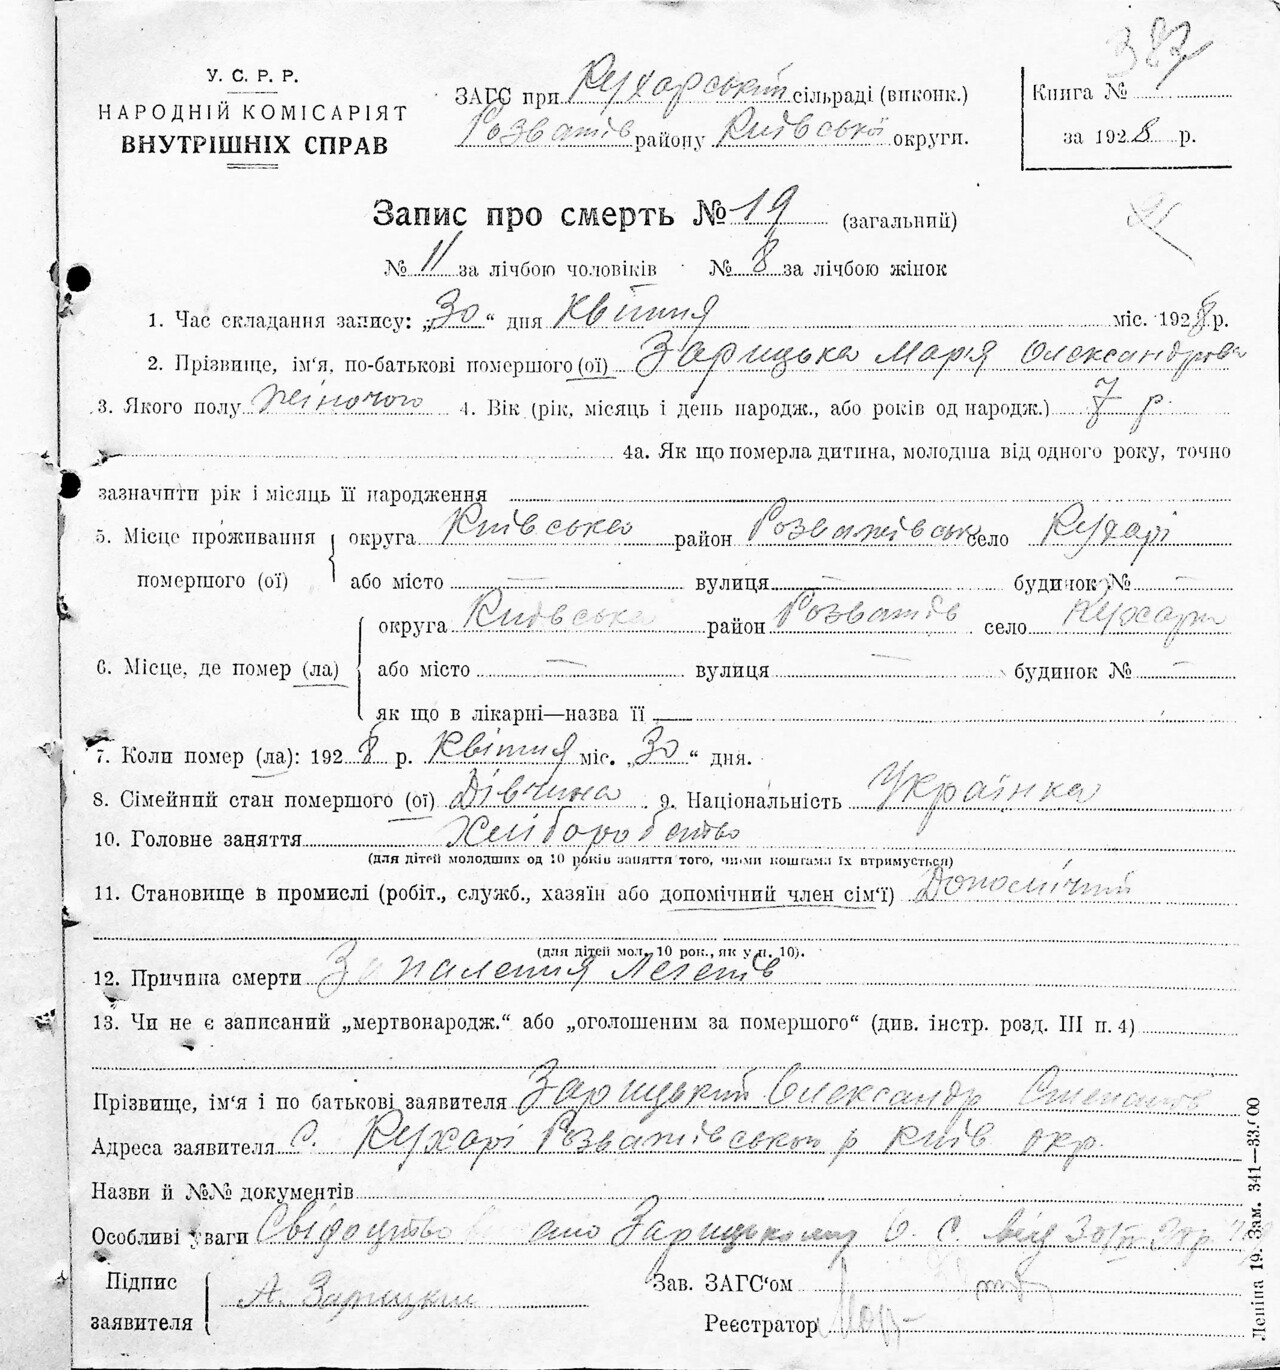 387
У. С. Р. Р.
НАРОДНІЙ КОМІСАРІЯТ
ВНУТРІШНІХ СПРАВ
ЗАГС при Кухарській сільраді (виконк.)
Розважів району Київської округи.
Книга №
за 1928 р.
Запис про смерть № 19 (загальний)
№ 11 за лічбою чоловіків № 8 за лічбою жінок
1. Час складання запису: „30“ дня квітня міс. 1928 р.
2. Прізвище, ім'я, по-батькові помершого (ої) Зарицька Марія Олександрова
3. Якого полу жіночого 4. Вік (рік, місяць і день народж., або років од народж.) 7 р.
4а. Як що померла дитина, молодша від одного року, точно
зазначити рік і місяць її народження
5. Місце проживання помершого (ої) округа Київська район Розважівськ село Кухарі
або місто — вулиця — будинок № —
6. Місце, де помер (ла) округа Київська район Розважів село Кухари
або місто — вулиця — будинок № —
як що в лікарні—назва її —
7. Коли помер (ла): 1928 р. квітня міс. „30“ дня.
8. Сімейний стан помершого (ої) Дівчина 9. Національність Українка
10. Головне заняття Хліборобство
(для дітей молодших од 10 років заняття того, чиїми коштами їх втримується)
11. Становище в промислі (робіт., служб., хазяїн або допомічний член сім'ї) Допомічний
(для дітей мол. 10 рок., як у п. 10).
12. Причина смерти Запалення Легенів
13. Чи не є записаний „мертвонародж.“ або „оголошеним за помершого“ (див. інстр. розд. III п. 4)
Прізвище, ім'я і по батькові заявителя Зарицький Олександр Степанов
Адреса заявителя с. Кухарі Розважівськой р Київ. окр.
Назви й №№ документів
Особливі уваги Свідоцтво Зарицькому О. С. від 30/IV 28р.
Підпис заявителя А. Зарицкий
Зав. ЗАГС'ом
Реєстратор
Леніна 19. Зам. 341—33.000